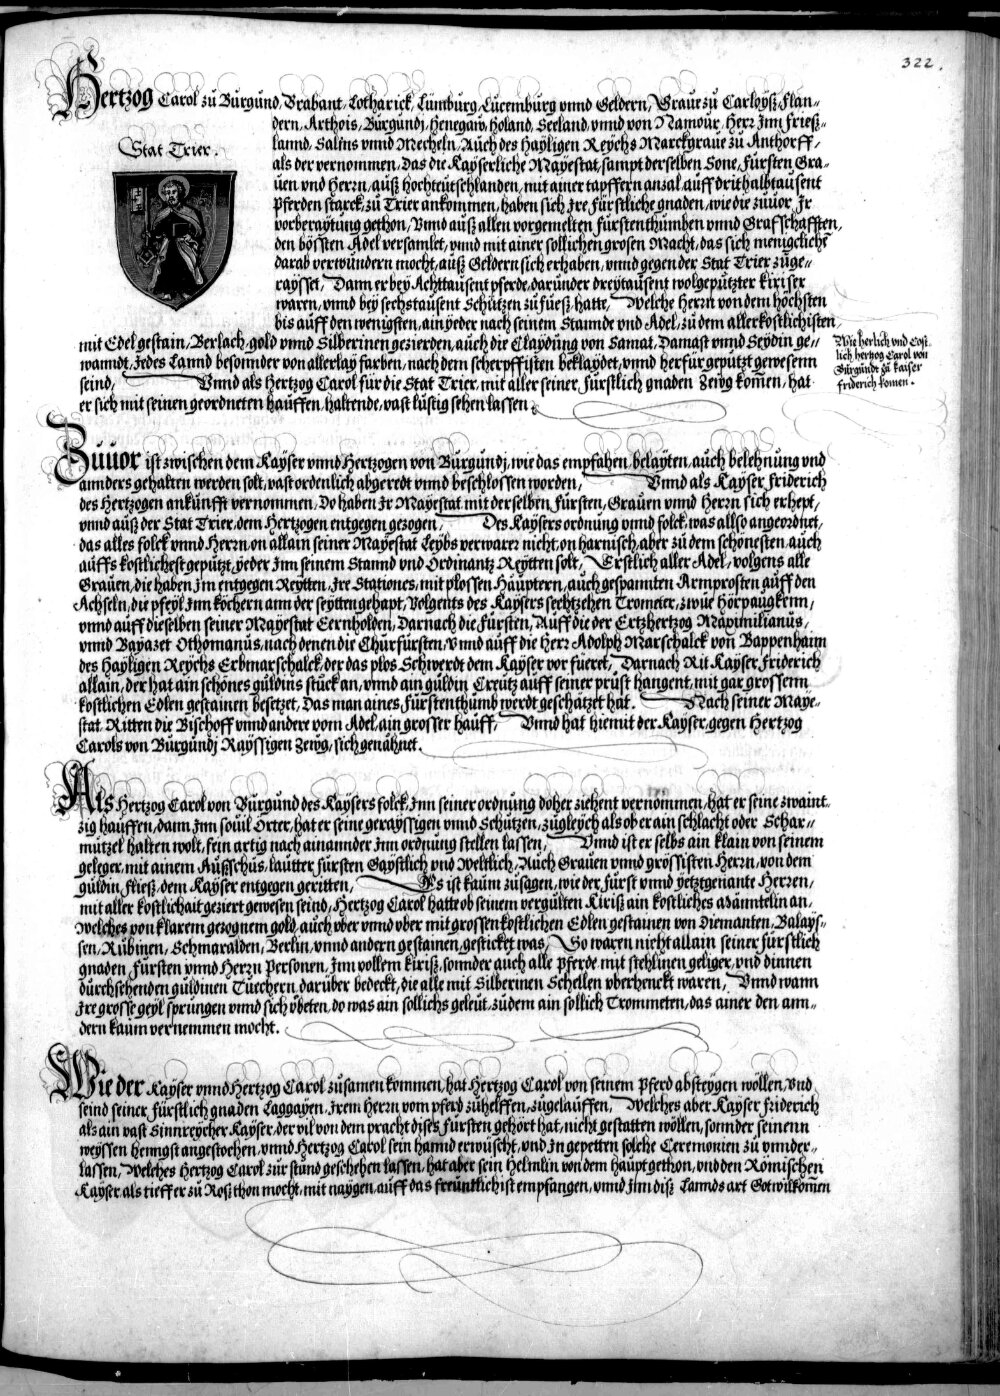 322.
Hertzog Carol zů Burgund, Brabant, Lotharick, Lümburg, Lucemburg vnnd Geldern, Graue zu Carloyß, Flan=
dern, Arthois, Burgundj, Henegaw, Holand, Seeland, vnnd von Namour, Herr Jnn Frieß=
Stat Trier.
lannd, Salins vnnd Mecheln, Auch des Hayligen Reychs Marckgraue zu Anthorff,
als der vernommen, Das die Kayserliche Mayestat, sampt derselben Sone, Fürsten Gra=
uen vnd Herrn, auß Hochteutschlanden, mit ainer tapffern anzal, auff drithalbtausent
Pferden starck, zu Trier ankommen, haben sich Jre Fürstliche gnaden, wie die zuuor Jr
vorberaytung gethon, Vnnd auß allen vorgemelten Fürstenthumben vnnd Grafschafften,
den bössten Adel versamlet, vnnd mit ainer sollichen grosen Macht, das sich menigcliche
darab verwundern mocht, auß Geldern sich erhaben, vnnd gegen der Stat Trier zuge=
raysset, Dann er bey Achttausent pferde, darunder dreytausent wolgeputzter Kiriser
waren, vnnd bey sechstausent Schützen zu fueß, hatte, Welche Herrn von dem höchsten
bis auff den wenigsten, ain yeder nach seinem Stannde vnd Adel, zu dem allerkostlichisten
mit Edel gestain, Berlach, gold vnnd Silberinen gezierden, auch die Claydung von Samat, Damast vnnd Seydin ge=
wanndt, Jedes Lannd besonnder von allerlay farben, nach dem scherpffisten beklaydet, vnnd herfür geputzt gewesenn
seind, Vnnd als Hertzog Carol für die Stat Trier, mit aller seiner, Fürstlich gnaden Zewg komen, hat
er sich mit seinen geordneten hauffen, haltende, vast lustig sehen lassen.
Wie herlich vnd cost
lich hertzog Carol von
Burgundt zu kaiser
friderich komen.
Zuuor ist zwischen dem Kayser vnnd Hertzogen von Burgundj, wie das empfahen, belayten, auch belehnung vnd
annders gehalten werden solt, vast ordenlich abgeredt vnnd beschlossen worden, Vnnd als Kayser Friderich
des Hertzogen ankunfft vernommen, Do haben Jr Mayestat mit derselben Fürsten, Grauen vnnd Herrn sich erhept,
vnnd auß der Stat Trier, dem Hertzogen entgegen gezogen, Des Kaysers ordnung vnnd folck, was allso angeordnet,
das alles folck vnnd Herrn, on allain seiner Mayestat Leybs verwarer nicht, on harnisch, aber zu dem schönesten, auch
auffs kostlichest geputzt, yeder Jnn seinem Stannd vnd Ordinantz Reytten solt, Erstlich aller Adel, volgens alle
Grauen, die haben Jm entgegen Reytten, Jre Stationes, mit plossen Häuptern, auch gespannten Armprosten auff den
Achseln, die pfeyl Jnn köchern ann der seytten gehapt, Volgents des Kaysers sechtzehen Trometer, zwue Hörpaugkenn,
vnnd auff dieselben seiner Mayestat Eernholden, Darnach die Fürsten, Auff die der Ertzhertzog Maximilianus,
vnnd Bayazet Othomanus, nach denen die Churfürsten, vnnd auff die Herr Adolph Marschalck von Bappenhaim
des Hayligen Reychs Erbmarschalck, der das plos Schwerdt dem Kayser vor fueret, Darnach Rit Kayser Friderich
allain, der hat ain schönes guldins stuck an, vnnd ain guldin Creutz auff seiner prust hangent, mit gar grossenn
kostlichen Edlen gestainen besetzet, Das man aines Fürstenthumb werdt geschätzet hat. Nach seiner Maye=
stat Ritten die Bischoff vnnd andere vom Adel, ain grosser hauff, Vnnd hat hiemit der Kayser, gegen Hertzog
Carols von Burgundj Rayssigen Zewg, sich genähnet.
Als Hertzog Carol von Burgund des Kaysers folck Jnn seiner ordnung doher ziehent vernommen, hat er seine zwaint=
zig hauffen, dann Jnn souil Örter, hat er seine geraysigen vnnd Schützen, zugleych als ob er ain schlacht oder Schar=
mützel halten wolt, fein artig nach ainannder Jnn ordnung stellen lassen, Vnnd ist er selbs ain klain von seinem
geleger, mit ainem Außschus, lautter Fürsten Gaystlich vnd Weltlich, Auch Grauen vnnd grössisten Herrn, von dem
guldin fließ, dem Kayser entgegen geritten, Es ist kaum zusagen, wie der Fürst vnnd yetztgenante Herren,
mit aller kostlichait geziert gewesen seind, Hertzog Carol hatte ob seinem vergulten Kiriß ain kostliches Männtelin an,
Welches von klarem gezognem gold, auch vber vnnd vber mit grossen kostlichen Edlen gestainen von Diemanten, Balays=
sen, Rubinen, Schmaralden, Berlin, vnnd andern gestainen, gesticket was, So waren nicht allain seiner Fürstlich
gnaden Fürsten vnnd Herrn Personen, Jnn vollem kiriß, sonnder auch alle Pferde mit stehlinen geliger, vnd dinnen
durchsehenden guldinen Tuechern darüber bedeckt, die alle mit Silberinen Schellen vberhenckt waren, Vnnd wann
Jre grosse geyl sprungen vnnd sich vbeten, do was ain sollichs geleut, zudem ain sollich Trommeten, das ainer den ann=
dern kaum vernemmen mocht.
Wie der Kayser vnnd Hertzog Carol zusamen kommen, hat Hertzog Carol von seinem Pferd absteygen wöllen, Vnd
seind seiner Fürstlich gnaden Laggayen, Jrem Herrn vom pferd zuhelffen, zugelauffen, Welches aber Kayser Friderich
als ain vast Sinnreycher Kayser, der vil von dem pracht dises Fürsten gehört hat, nicht gestatten wöllen, sonnder seinenn
weyssen henngst angestochen, vnnd Hertzog Carol sein hannd erwuscht, vnd Jn gepetten solche Ceremonien zu vnnder=
lassen, Welches Hertzog Carol zur stund geschehen lassen, hat aber sein Helmlin von dem haupt gethon, vnd den Römischen
Kayser als tieff er zu Ross thon mocht, mit naygen, auff das freuntlichist empfangen, vnnd Jnn diß Lannds art Gotwilkomen